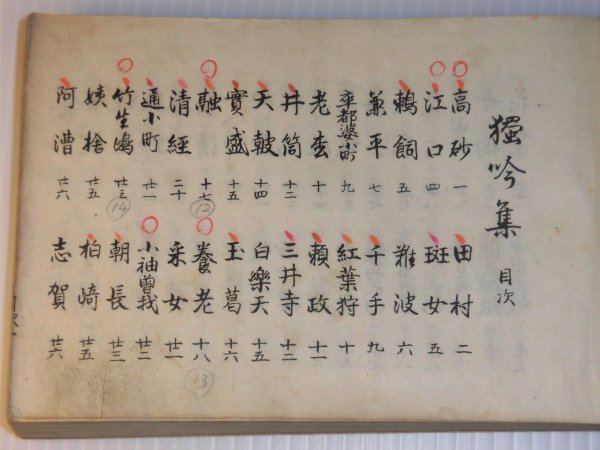 獨吟集 目次
高砂 一
田村 二
江口 四
斑女 五
鵜飼 五
難波 六
兼平 七
千手 九
卒都婆小町 九
紅葉狩 十
老松 十
頼政 十一
井筒 十二
三井寺 十二
天皷 十四
白樂天 十五
實盛 十五
玉葛 十六
融 十七 ⑫
養老 十八 ⑬
清經 二十
采女 廿一
通小町 廿一
小袖曽我 廿二
竹生嶋 廿三 ⑭
朝長 廿三
姨捨 廿五
柏崎 廿五
阿漕 廿六
志賀 廿六